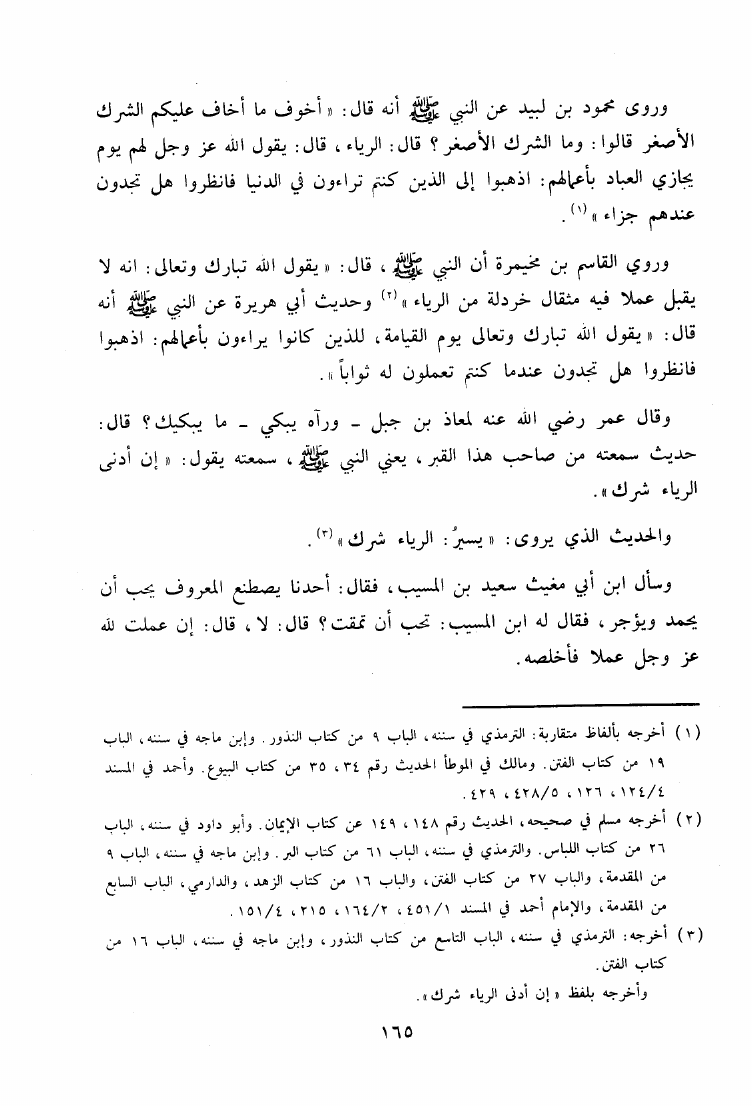 وروى محمود بن لبيد عن النبي ﷺ أنه قال: «أخوف ما أخاف عليكم الشرك
الأصغر قالوا: وما الشرك الأصغر؟ قال: الرياء، قال: يقول الله عز وجل لهم يوم
يجازي العباد بأعمالهم: اذهبوا إلى الذين كنتم تراءون في الدنيا فانظروا هل تجدون
عندهم جزاء»(١).
وروي القاسم بن مخيمرة أن النبي ﷺ، قال: «يقول الله تبارك وتعالى: انه لا
يقبل عملا فيه مثقال خردلة من الرياء»(٢) وحديث أبي هريرة عن النبي ﷺ أنه
قال: «يقول الله تبارك وتعالى يوم القيامة، للذين كانوا يراءون بأعمالهم: اذهبوا
فانظروا هل تجدون عندما كنتم تعملون له ثواباً».
وقال عمر رضي الله عنه لمعاذ بن جبل - ورآه يبكي - ما يبكيك؟ قال:
حديث سمعته من صاحب هذا القبر، يعني النبي ﷺ، سمعته يقول: «إن أدنى
الرياء شرك».
والحديث الذي يروى: «يسيرُ: الرياء شرك»(٣).
وسأل ابن أبي مغيث سعيد بن المسيب، فقال: أحدنا يصطنع المعروف يحب أن
يحمد ويؤجر، فقال له ابن المسيب: تحب أن تمقت؟ قال: لا، قال: إن عملت لله
عز وجل عملا فأخلصه.
(١) أخرجه بألفاظ متقاربة: الترمذي في سننه، الباب ٩ من كتاب النذور. وإبن ماجه في سننه، الباب
١٩ من كتاب الفتن. ومالك في الموطأ الحديث رقم ٣٤، ٣٥ من كتاب البيوع. وأحمد في المسند
١٢٤/٤، ١٢٦، ٤٢٨/٥، ٤٢٩.
(٢) أخرجه مسلم في صحيحه، الحديث رقم ١٤٨، ١٤٩ عن كتاب الإيمان. وأبو داود في سننه، الباب
٢٦ من كتاب اللباس. والترمذي في سننه، الباب ٦١ من كتاب البر. وإبن ماجه في سننه، الباب ٩
من المقدمة، والباب ٢٧ من كتاب الفتن، والباب ١٦ من كتاب الزهد، والدارمي، الباب السابع
من المقدمة، والإمام أحمد في المسند ٤٥١/١، ١٦٤/٢، ٢١٥، ١٥١/٤.
(٣) أخرجه: الترمذي في سننه، الباب التاسع من كتاب النذور، وإبن ماجه في سننه، الباب ١٦ من
كتاب الفتن.
وأخرجه بلفظ «إن أدنى الرياء شرك».
١٦٥